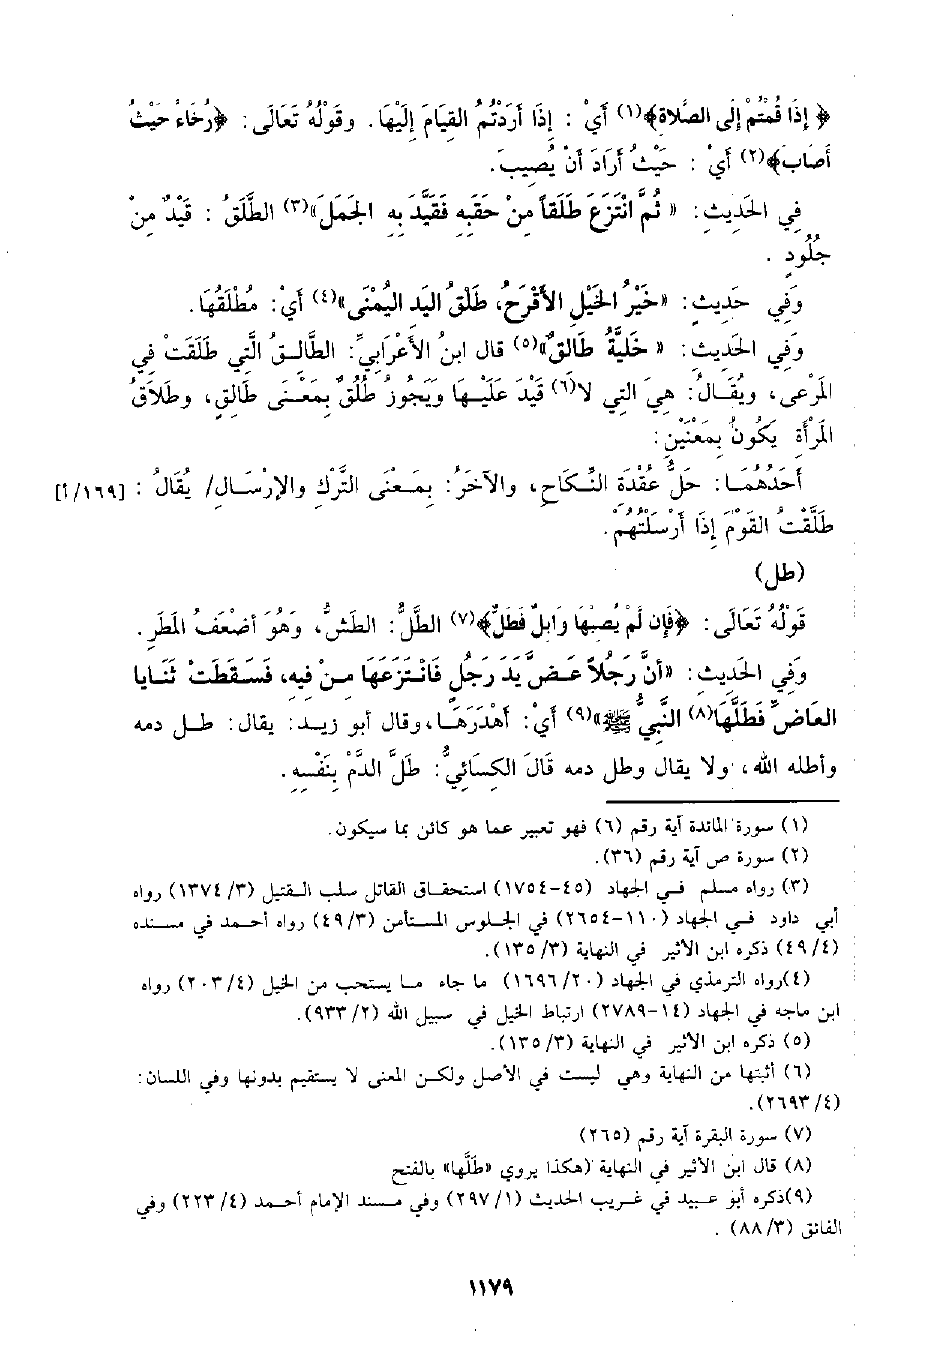 ﴿ إِذَا قُمْتُمْ إِلَى الصَّلاَةِ﴾(١) أَيْ : إِذَا أَرَدْتُمُ القِيَامَ إِلَيْهَا. وَقَوْلُهُ تَعَالَى: ﴿رُخَاءً حَيْثُ
أَصَابَ﴾(٢) أَيْ : حَيْثُ أَرَادَ أَنْ يُصِيبَ.
فِي الحَدِيثِ: « ثُمَّ انْتَزَعَ طَلَقاً مِنْ حَقَبِهِ فَقَيَّدَ بِهِ الجَمَلَ»(٣) الطَّلَقُ : قَيْدٌ مِنْ
جُلُودٍ .
وَفِي حَدِيثٍ: «خَيْرُ الخَيْلِ الأَقْرَحُ، طَلْقُ اليَدِ اليُمْنَى»(٤) أَيْ: مُطْلَقُهَا.
وَفِي الحَدِيثِ: « خَلِيَّةٌ طَالِقٌ»(٥) قَال ابنُ الأَعْرَابِيِّ: الطَّالِقُ الَّتِي طَلَقَتْ فِي
المَرْعَى، ويُقَالُ: هِيَ التِي لا(٦) قَيْدَ عَلَيْهَا وَيَجُوزُ طُلُقٌ بِمَعْنَى طَالِقٍ، وطَلاَقُ
المَرْأَةِ يَكُونُ بِمَعْنَيَيْنِ:
أَحَدُهُمَا: حَلُّ عُقْدَةِ النِّكَاحِ، والآخَرُ: بِمَعْنَى التَّرْكِ والإِرْسَالِ/ يُقَالُ : [١٦٩/أ]
طَلَّقْتُ القَوْمَ إِذَا أَرْسَلْتُهُمْ.
(طل)
قَوْلُهُ تَعَالَى: ﴿فَإِن لَمْ يُصِبْهَا وَابِلٌ فَطَلٌّ﴾(٧) الطَّلُّ: الطَشُّ، وَهُوَ أَضْعَفُ المَطَرِ.
وَفِي الحَدِيثِ: «أَنَّ رَجُلاً عَضَّ يَدَ رَجُلٍ فَانْتَزَعَهَا مِنْ فِيهِ، فَسَقَطَتْ ثَنَايَا
العَاضِّ فَطَلَّهَا(٨) النَّبِيُّ ﷺ»(٩) أَيْ: أَهْدَرَهَا، وقال أبو زيد: يقال: طل دمه
وأطله الله، ولا يقال وطل دمه قَالَ الكِسَائِيُّ: طَلَّ الدَّمُ بِنَفْسِهِ.
(١) سورة المائدة آية رقم (٦) فهو تعبير عما هو كائن بما سيكون.
(٢) سورة ص آية رقم (٣٦).
(٣) رواه مسلم في الجهاد (٤٥-١٧٥٤) استحقاق القاتل سلب القتيل (٣/ ١٣٧٤) رواه
أبي داود في الجهاد (١١٠-٢٦٥٤) في الجلوس المستأمن (٤٩/٣) رواه أحمد في مسنده
(٤٩/٤) ذكره ابن الأثير في النهاية (١٣٥/٣).
(٤)رواه الترمذي في الجهاد (١٦٩٦/٢٠) ما جاء ما يستحب من الخيل (٢٠٣/٤) رواه
ابن ماجه في الجهاد (١٤-٢٧٨٩) ارتباط الخيل في سبيل الله (٩٣٣/٢).
(٥) ذكره ابن الأثير في النهاية (١٣٥/٣).
(٦) أثبتها من النهاية وهي ليست في الأصل ولكن المعنى لا يستقيم بدونها وفي اللسان:
(٢٦٩٣/٤).
(٧) سورة البقرة آية رقم (٢٦٥)
(٨) قال ابن الأثير في النهاية (هكذا يروي «طَلَّها» بالفتح
(٩)ذكره أبو عبيد في غريب الحديث (٢٩٧/١) وفي مسند الإمام أحمد (٢٢٣/٤) وفي
الفائق (٨٨/٣) .
١١٧٩